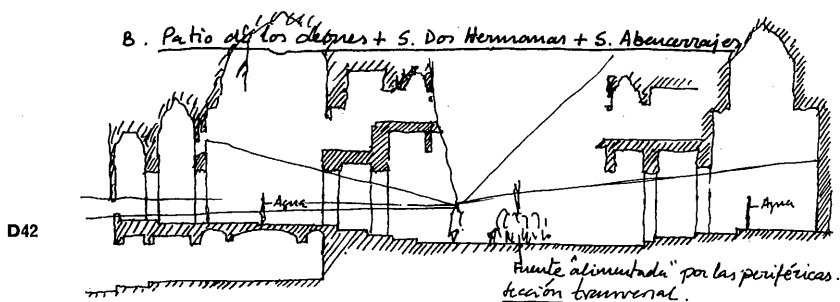 B. Patio de los Leones + S. Dos Hermanas + S. Abencerrajes
Agua
Agua
D42
Fuente "alimentada" por las periféricas.
Sección transversal.